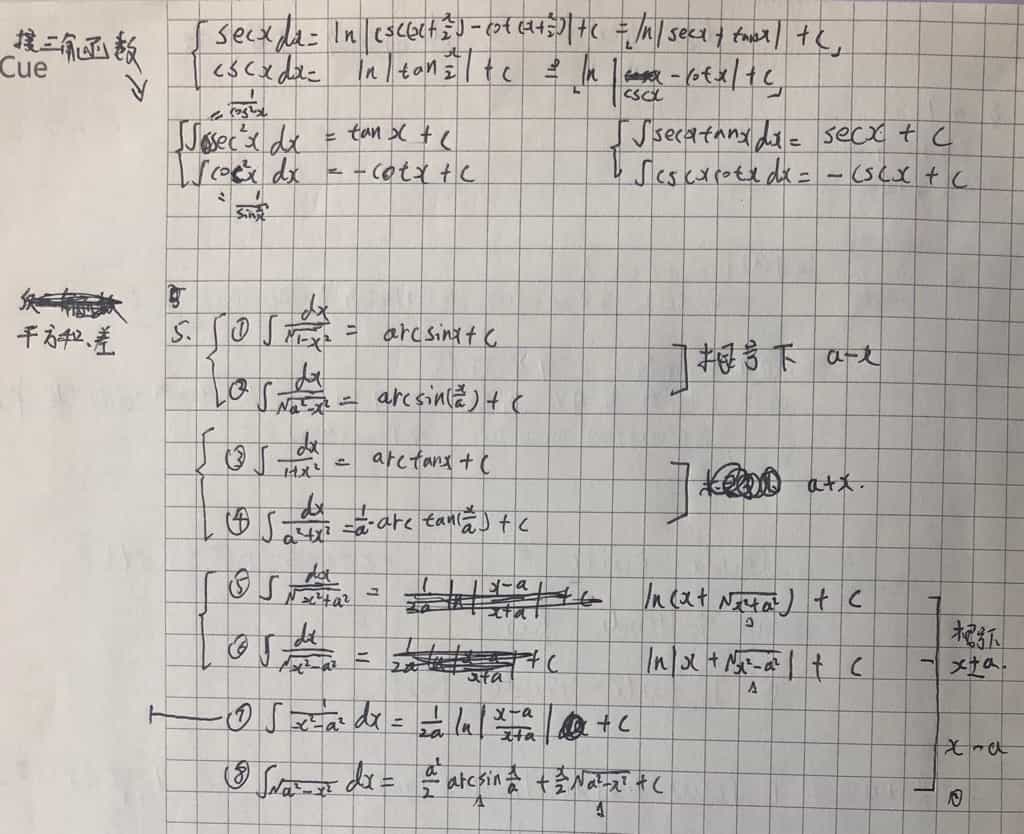 接三角函数
Cue
secxdx= ln|csc(x+π/2)-cot(x+π/2)|+c = ln|secx+tanx|+C,
cscxdx= ln|tan x/2|+c = ln|cscx-cotx|+C,
= 1/cos²x
∫sec²x dx = tanx+C
∫secxtanxdx= secx+C
∫csc²x dx = -cotx+C
∫cscxcotxdx= -cscx+C
= 1/sin²x
平方和、差
5. ① ∫ dx/√1-x² = arcsinx+C
② ∫ dx/√a²-x² = arcsin(x/a)+C
根号下 a-x
③ ∫ dx/1+x² = arctanx+C
④ ∫ dx/a²+x² = 1/a·arctan(x/a)+C
a+x.
⑤ ∫ dx/√x²+a² = ln(x+√x²+a²)+C
⑥ ∫ dx/√x²-a² = +C ln|x+√x²-a²|+C
根号下
x±a.
⑦ ∫ 1/x²-a² dx = 1/2a ln|x-a/x+a|+C
x-a
⑧ ∫√a²-x² dx= a²/2 arcsin x/a + x/2 √a²-x² +C